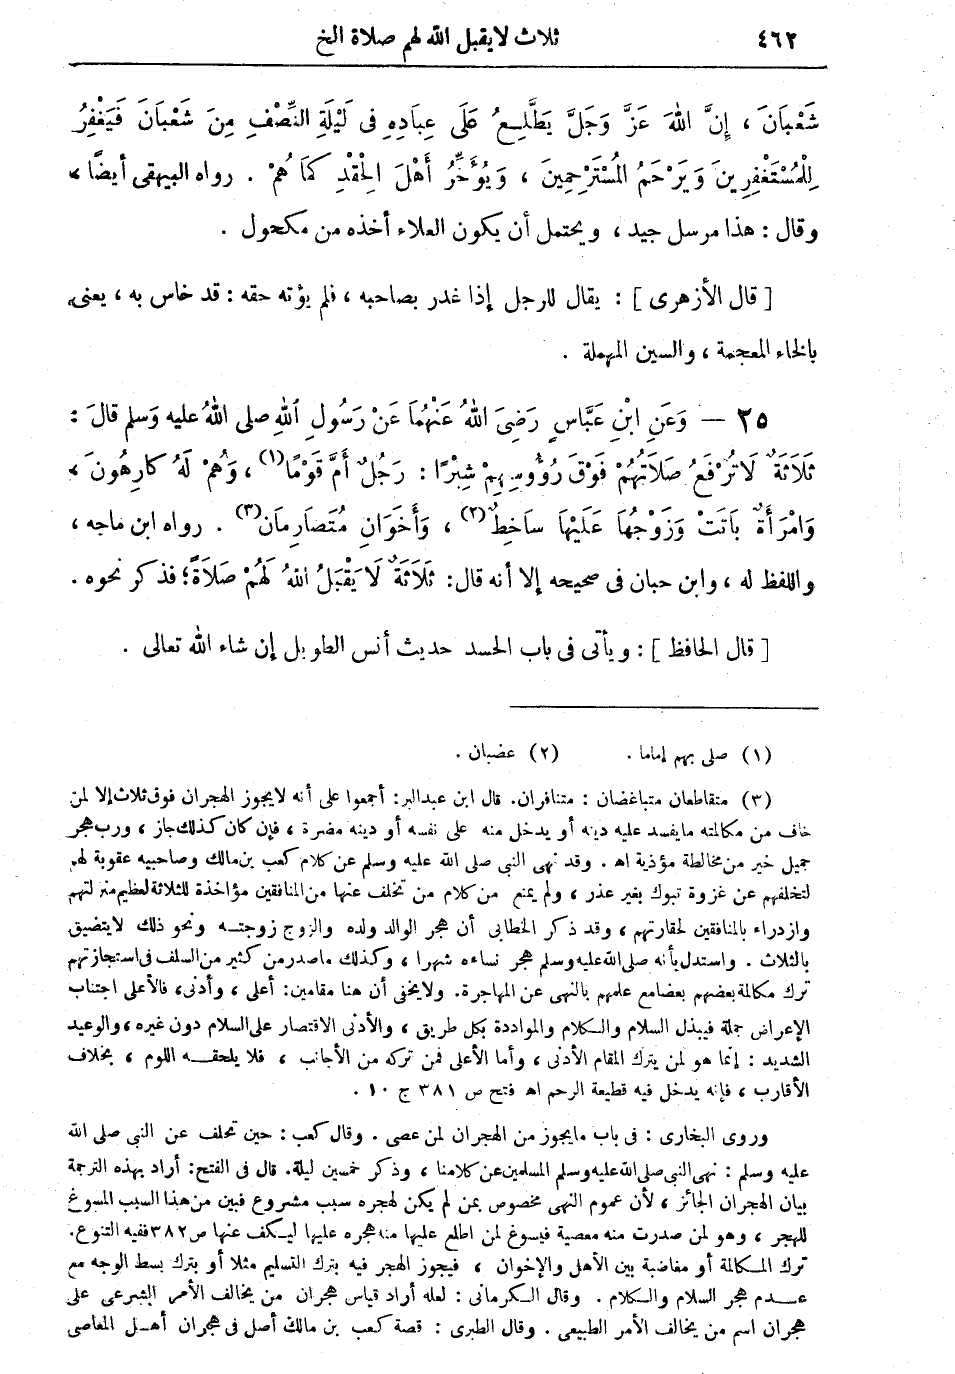 ٤٦٢ ثلاث لا يقبل الله لهم صلاة الخ
شَعْبَانَ ، إِنَّ اللهَ عَزَّ وَجَلَّ يَطَّلِعُ عَلَى عِبَادِهِ فِى لَيْلَةِ النِّصْفِ مِنَ شَعْبَانَ فَيَغْفِرُ
لِلْمُسْتَغْفِرِينَ وَيَرْحَمُ الْمُسْتَرْحِمِينَ ، وَيُؤَخِّرُ أَهْلَ الْحِقْدِ كَمَا هُمْ . رواه البيهقى أيضًا ،
وقال : هذا مرسل جيد ، ويحتمل أن يكون العلاء أخذه من مكحول .
[ قال الأزهرى ] : يقال للرجل إذا غدر بصاحبه ، فلم يؤته حقه : قد خاس به ، يعنى
بالخاء المعجمة ، والسين المهملة .
٢٥ — وَعَنِ ابْنِ عَبَّاسٍ رَضِىَ اللهُ عَنْهُمَا عَنْ رَسُولِ اللهِ صلى اللهُ عليه وَسلم قالَ :
ثَلَاثَةٌ لَا تُرْفَعُ صَلَاتُهُمْ فَوْقَ رُؤُوسِهِمْ شِبْرًا : رَجُلٌ أَمَّ قَوْمًا(١) ، وَهُمْ لَهُ كَارِهُونَ ،
وَامْرَأَةٌ بَاتَتْ وَزَوْجُهَا عَلَيْهَا سَاخِطٌ(٢) ، وَأَخَوَانِ مُتَصَارِمَانِ(٣) . رواه ابن ماجه ،
واللفظ له ، وابن حبان فى صحيحه إلا أنه قال : ثَلَاثَةٌ لَا يَقْبَلُ اللهُ لَهُمْ صَلَاةً ؛ فذكر نحوه .
[ قال الحافظ ] : ويأتى فى باب الحسد حديث أنس الطويل إن شاء الله تعالى .
(١) صلى بهم إماما . (٢) غضبان .
(٣) متقاطعان متباغضان : متنافران. قال ابن عبدالبر: أجمعوا على أنه لايجوز الهجران فوق ثلاث إلا لمن
خاف من مكالمته مايفسد عليه دينه أو يدخل منه على نفسه أو دينه مضرة ، فإن كان كذلك جاز ، ورب هجر
جميل خير من مخالطة مؤذية اهـ . وقد نهى النبى صلى الله عليه وسلم عن كلام كعب بن مالك وصاحبيه عقوبة لهم
لتخلفهم عن غزوة تبوك بغير عذر ، ولم يمنع من كلام من تخلف عنها من المنافقين مؤاخذة للثلاثة لعظيم منزلتهم
وازدراء بالمنافقين لحقارتهم ، وقد ذكر الخطابى أن هجر الوالد ولده والزوج زوجته ونحو ذلك لايتضيق
بالثلاث . واستدل بأنه صلى الله عليه وسلم هجر نساءه شهرا ، وكذلك ماصدر من كثير من السلف فى استجازتهم
ترك مكالمة بعضهم بعضا مع علمهم بالنهى عن المهاجرة. ولايخفى أن هنا مقامين: أعلى ، وأدنى، فالأعلى اجتناب
الإعراض جملة فيبذل السلام والكلام والمواددة بكل طريق ، والأدنى الاقتصار على السلام دون غيره ، والوعيد
الشديد : إنما هو لمن يترك المقام الأدنى ، وأما الأعلى فمن تركه من الأجانب ، فلا يلحقه اللوم ، بخلاف
الأقارب ، فإنه يدخل فيه قطيعة الرحم اهـ فتح ص ٣٨١ ج ١٠ .
وروى البخارى : فى باب مايجوز من الهجران لمن عصى . وقال كعب : حين تخلف عن النبى صلى الله
عليه وسلم : نهى النبى صلى الله عليه وسلم المسلمين عن كلامنا ، وذكر خمسين ليلة. قال فى الفتح: أراد بهذه الترجمة
بيان الهجران الجائز ، لأن عموم النهى مخصوص بمن لم يكن لهجره سبب مشروع فبين من هذا السبب المسوغ
للهجر ، وهو لمن صدرت منه معصية فيسوغ لمن اطلع عليها منه هجره عليها ليكف عنها ص ٣٨٢ ففيه التنوع.
ترك المكالمة أو مغاضبة بين الأهل والإخوان ، فيجوز الهجر فيه بترك التسليم مثلا أو بترك بسط الوجه مع
عدم هجر السلام والكلام . وقال الكرمانى : لعله أراد قياس هجران من يخالف الأمر الشرعى على
هجران اسم من يخالف الأمر الطبيعى . وقال الطبرى : قصة كعب بن مالك أصل فى هجران أهل المعاصى